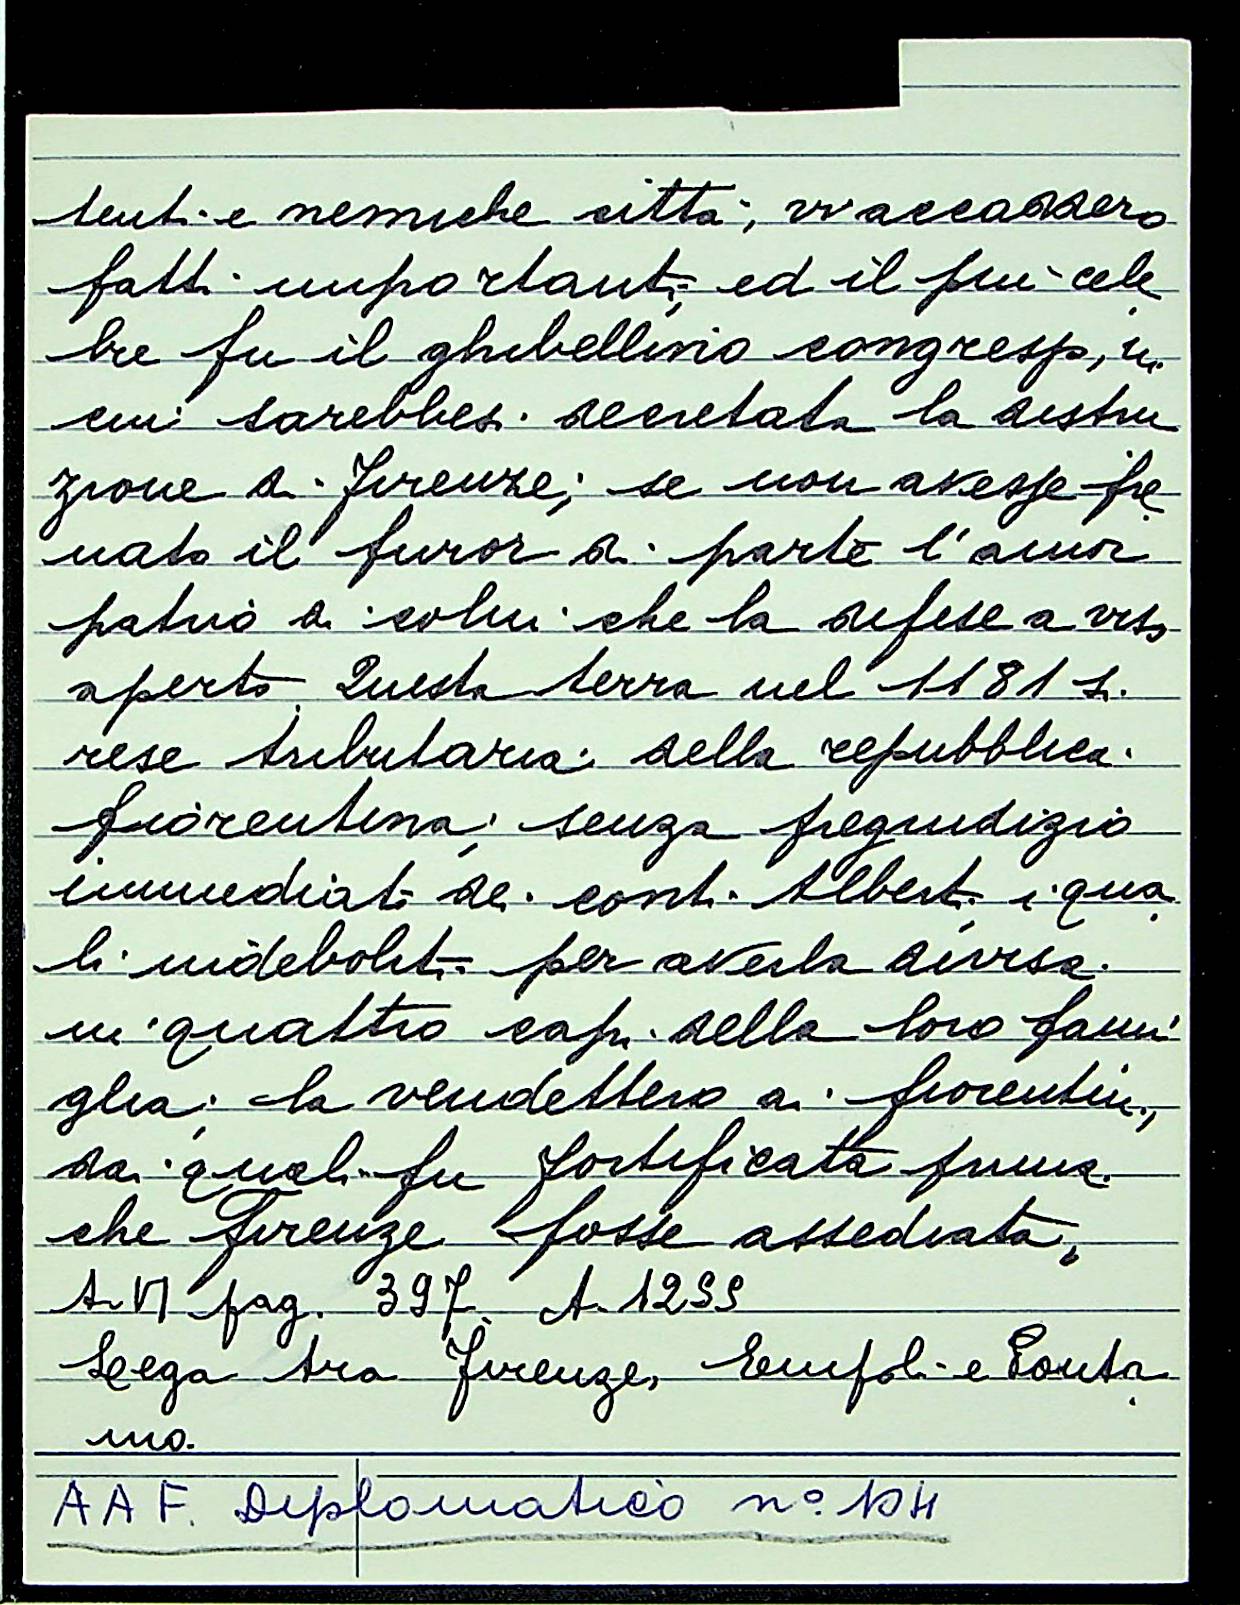 tenti e nemiche città, vi accaddero
fatti importanti, ed il più cele
bre fu il ghibellino congresso, in
cui sarebbesi decretata la distru
zione di Firenze; se non avesse fre
nato il furor di parte l'amor
patrio di colui che la difese a viso
aperto. Questa terra nel 1181 si
rese tributaria della repubblica
fiorentina, senza pregiudizio
immediato dei conti Alberti i qua
li indeboliti per averla divisa
in quattro capi della loro fami
glia, la vendettero ai fiorentini,
dai quali fu fortificata prima
che Firenze fosse assediata.
A. VI pag. 397. A. 1255
Lega tra Firenze, Empoli e Ponto
mo.
AAF. Diplomatico n°